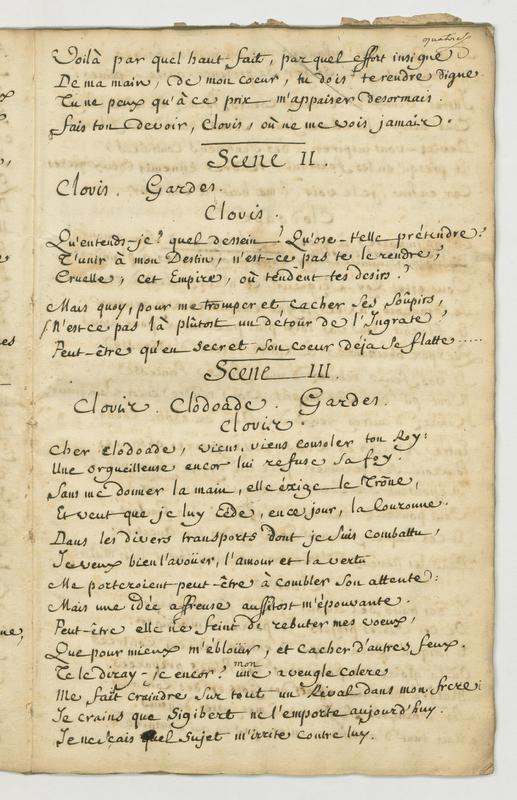 quatre
Voilà par quel haut-fait, par quel effort insigne
De ma main, de mon coeur, tu dois te rendre digne.
Tu ne peux qu'à ce prix m'appaiser desormais.
fais ton devoir, Clovis, où ne me vois jamais.
Scene II.
Clovis. Gardes.
Clovis.
Qu'entends-je? quel dessein? Qu'ose-t'elle prétendre?
T'unir à mon Destin, n'est-ce pas te le rendre,
Cruelle, cet Empire, où tendent tes desirs?
Mais quoy, pour me tromper et cacher ses soûpirs,
N'est-ce pas là plûtost un détour de l'Ingrate?
Peut-être qu'en secret son coeur deja se flatte.....
Scene III.
Clovis. Clodoade. Gardes.
Clovis.
Cher Clodoade, viens, viens consoler ton Roy:
Une orgueilleuse encor lui refuse sa foy.
Sans me donner la main, elle éxige le Trône,
Et veut que je luy cède, en ce jour, la Couronne.
Dans les divers transports dont je suis combattu,
Je veux bien l'avoüer, l'amour et la vertu
Me porteroient peut-être à combler son attente:
Mais une idée affreuse aussitost m'épouvante.
Peut-être elle ne feint de rebuter mes voeux,
Que pour mieux m'éblouïr, et cacher d'autres feux.
Te le diray-je encor? mon aveugle colere
Me fait craindre sur tout un Rival dans mon frere:
Je crains que Sigibert ne l'emporte aujourd'huy.
Je ne sçais quel sujet m'irrite contre luy.